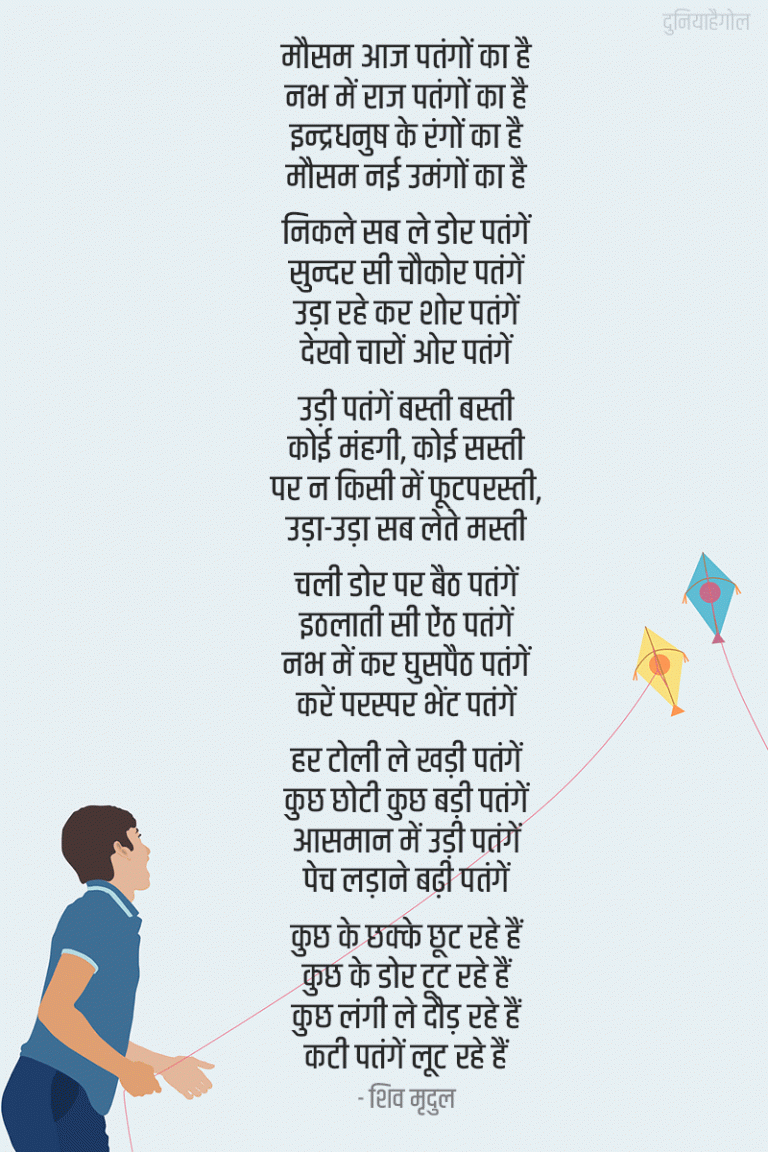 दुनियाहैगोल
मौसम आज पतंगों का है
नभ में राज पतंगों का है
इन्द्रधनुष के रंगों का है
मौसम नई उमंगों का है
निकले सब ले डोर पतंगें
सुन्दर सी चौकोर पतंगें
उड़ा रहे कर शोर पतंगें
देखो चारों ओर पतंगें
उड़ी पतंगें बस्ती बस्ती
कोई मंहगी, कोई सस्ती
पर न किसी में फूटपरस्ती,
उड़ा-उड़ा सब लेते मस्ती
चली डोर पर बैठ पतंगें
इठलाती सी ऐंठ पतंगें
नभ में कर घुसपैठ पतंगें
करें परस्पर भेंट पतंगें
हर टोली ले खड़ी पतंगें
कुछ छोटी कुछ बड़ी पतंगें
आसमान में उड़ी पतंगें
पेच लड़ाने बढ़ी पतंगें
कुछ के छक्के छूट रहे हैं
कुछ के डोर टूट रहे हैं
कुछ लंगी ले दौड़ रहे हैं
कटी पतंगें लूट रहे हैं
- शिव मृदुल